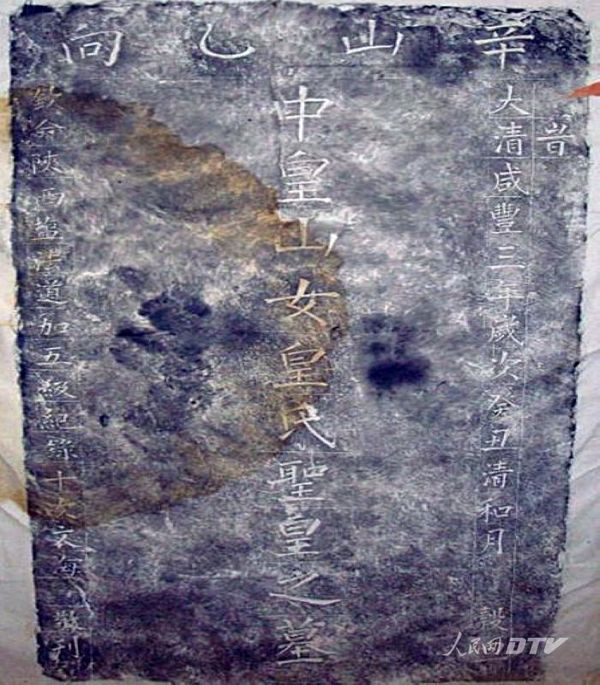 辛山乙向
大清咸豐三年歲次癸丑清和月 穀
中皇山女皇氏聖皇之墓
欽命陝西鹽法道加五級紀錄十次文海 敬刊
人民网DTV